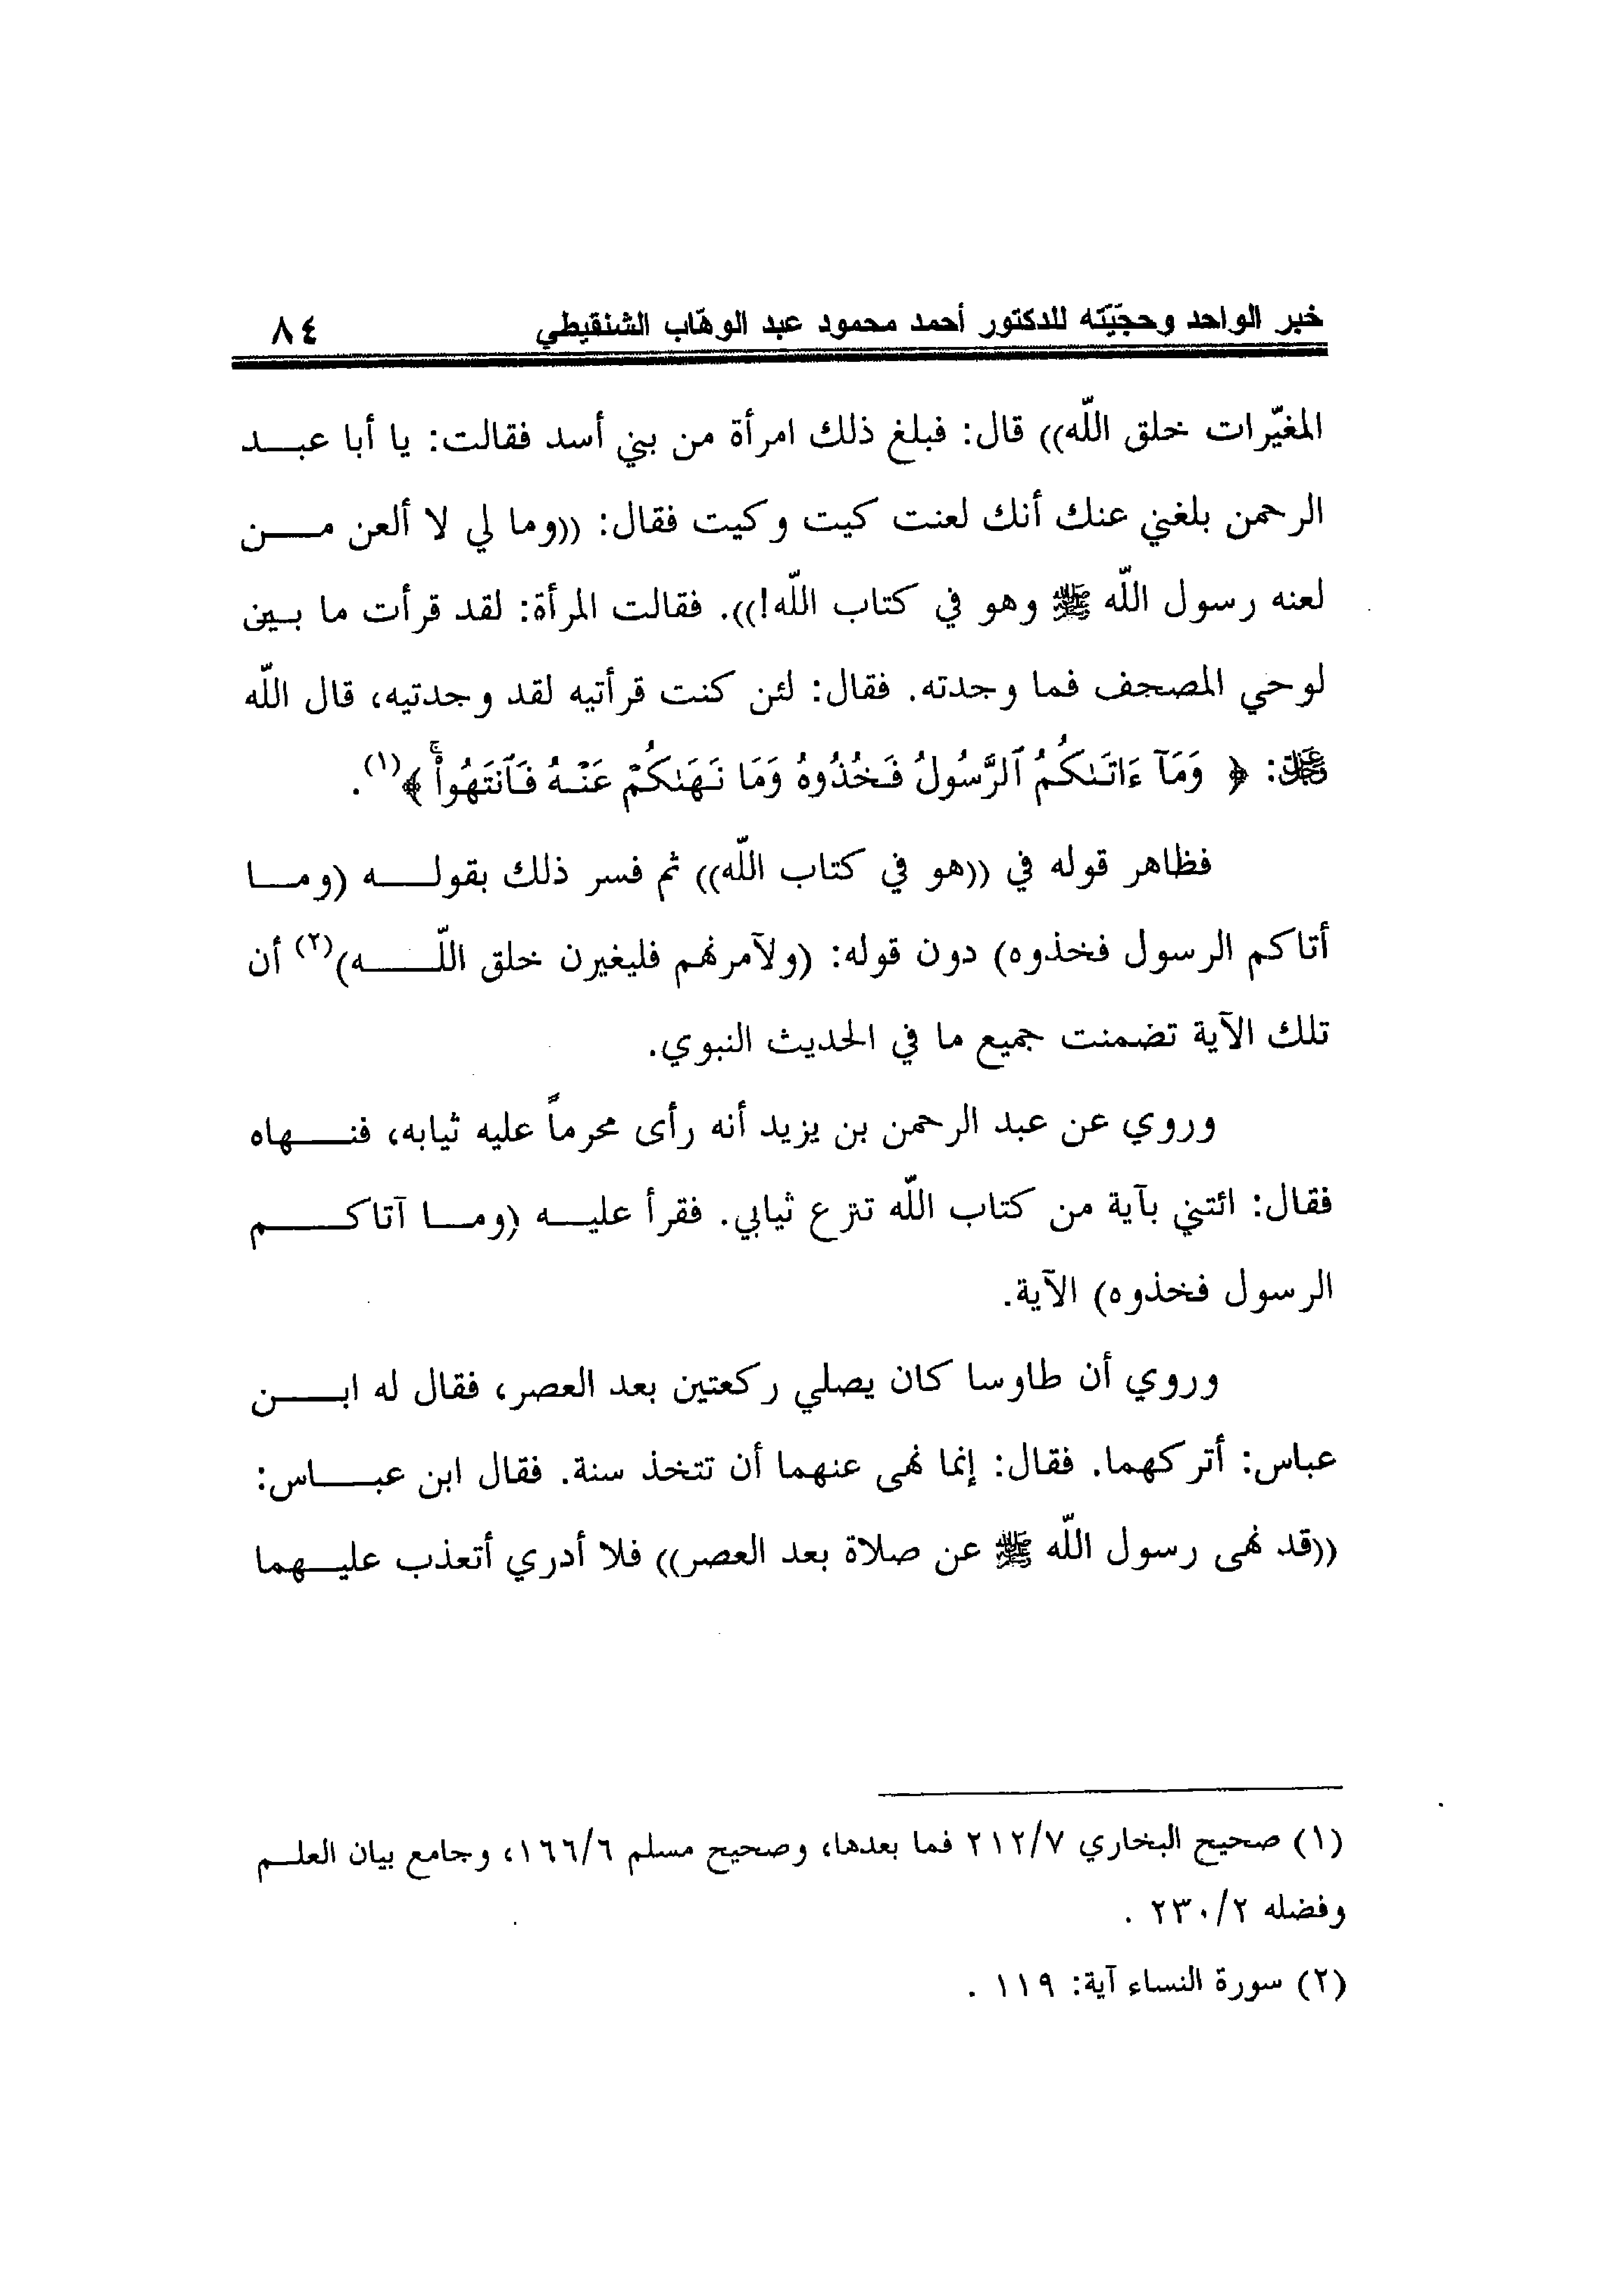 خبر الواحد وحجيّته للدكتور أحمد محمود عبد الوهّاب الشنقيطي ٨٤
المغيّرات خلق اللّه)) قال: فبلغ ذلك امرأة من بني أسد فقالت: يا أبا عبد
الرحمن بلغني عنك أنك لعنت كيت وكيت فقال: ((وما لي لا ألعن من
لعنه رسول اللّه ﷺ وهو في كتاب اللّه!)). فقالت المرأة: لقد قرأت ما بين
لوحي المصحف فما وجدته. فقال: لئن كنت قرأتيه لقد وجدتيه، قال اللّه
عز وجل: ﴿ وَمَآ ءَاتَىٰكُمُ ٱلرَّسُولُ فَخُذُوهُ وَمَا نَهَىٰكُمْ عَنْهُ فَٱنتَهُوا۟ۚ ﴾(١).
فظاهر قوله في ((هو في كتاب اللّه)) ثم فسر ذلك بقوله (وما
أتاكم الرسول فخذوه) دون قوله: (ولآمرنهم فليغيرن خلق اللّه)(٢) أن
تلك الآية تضمنت جميع ما في الحديث النبوي.
وروي عن عبد الرحمن بن يزيد أنه رأى محرماً عليه ثيابه، فنهاه
فقال: ائتني بآية من كتاب اللّه تنزع ثيابي. فقرأ عليه (وما آتاكم
الرسول فخذوه) الآية.
وروي أن طاوسا كان يصلي ركعتين بعد العصر، فقال له ابن
عباس: أتركهما. فقال: إنما نهى عنهما أن تتخذ سنة. فقال ابن عباس:
((قد نهى رسول اللّه ﷺ عن صلاة بعد العصر)) فلا أدري أتعذب عليهما
(١) صحيح البخاري ٢١٢/٧ فما بعدها، وصحيح مسلم ١٦٦/٦، وجامع بيان العلم
وفضله ٢٣٠/٢ .
(٢) سورة النساء آية: ١١٩ .